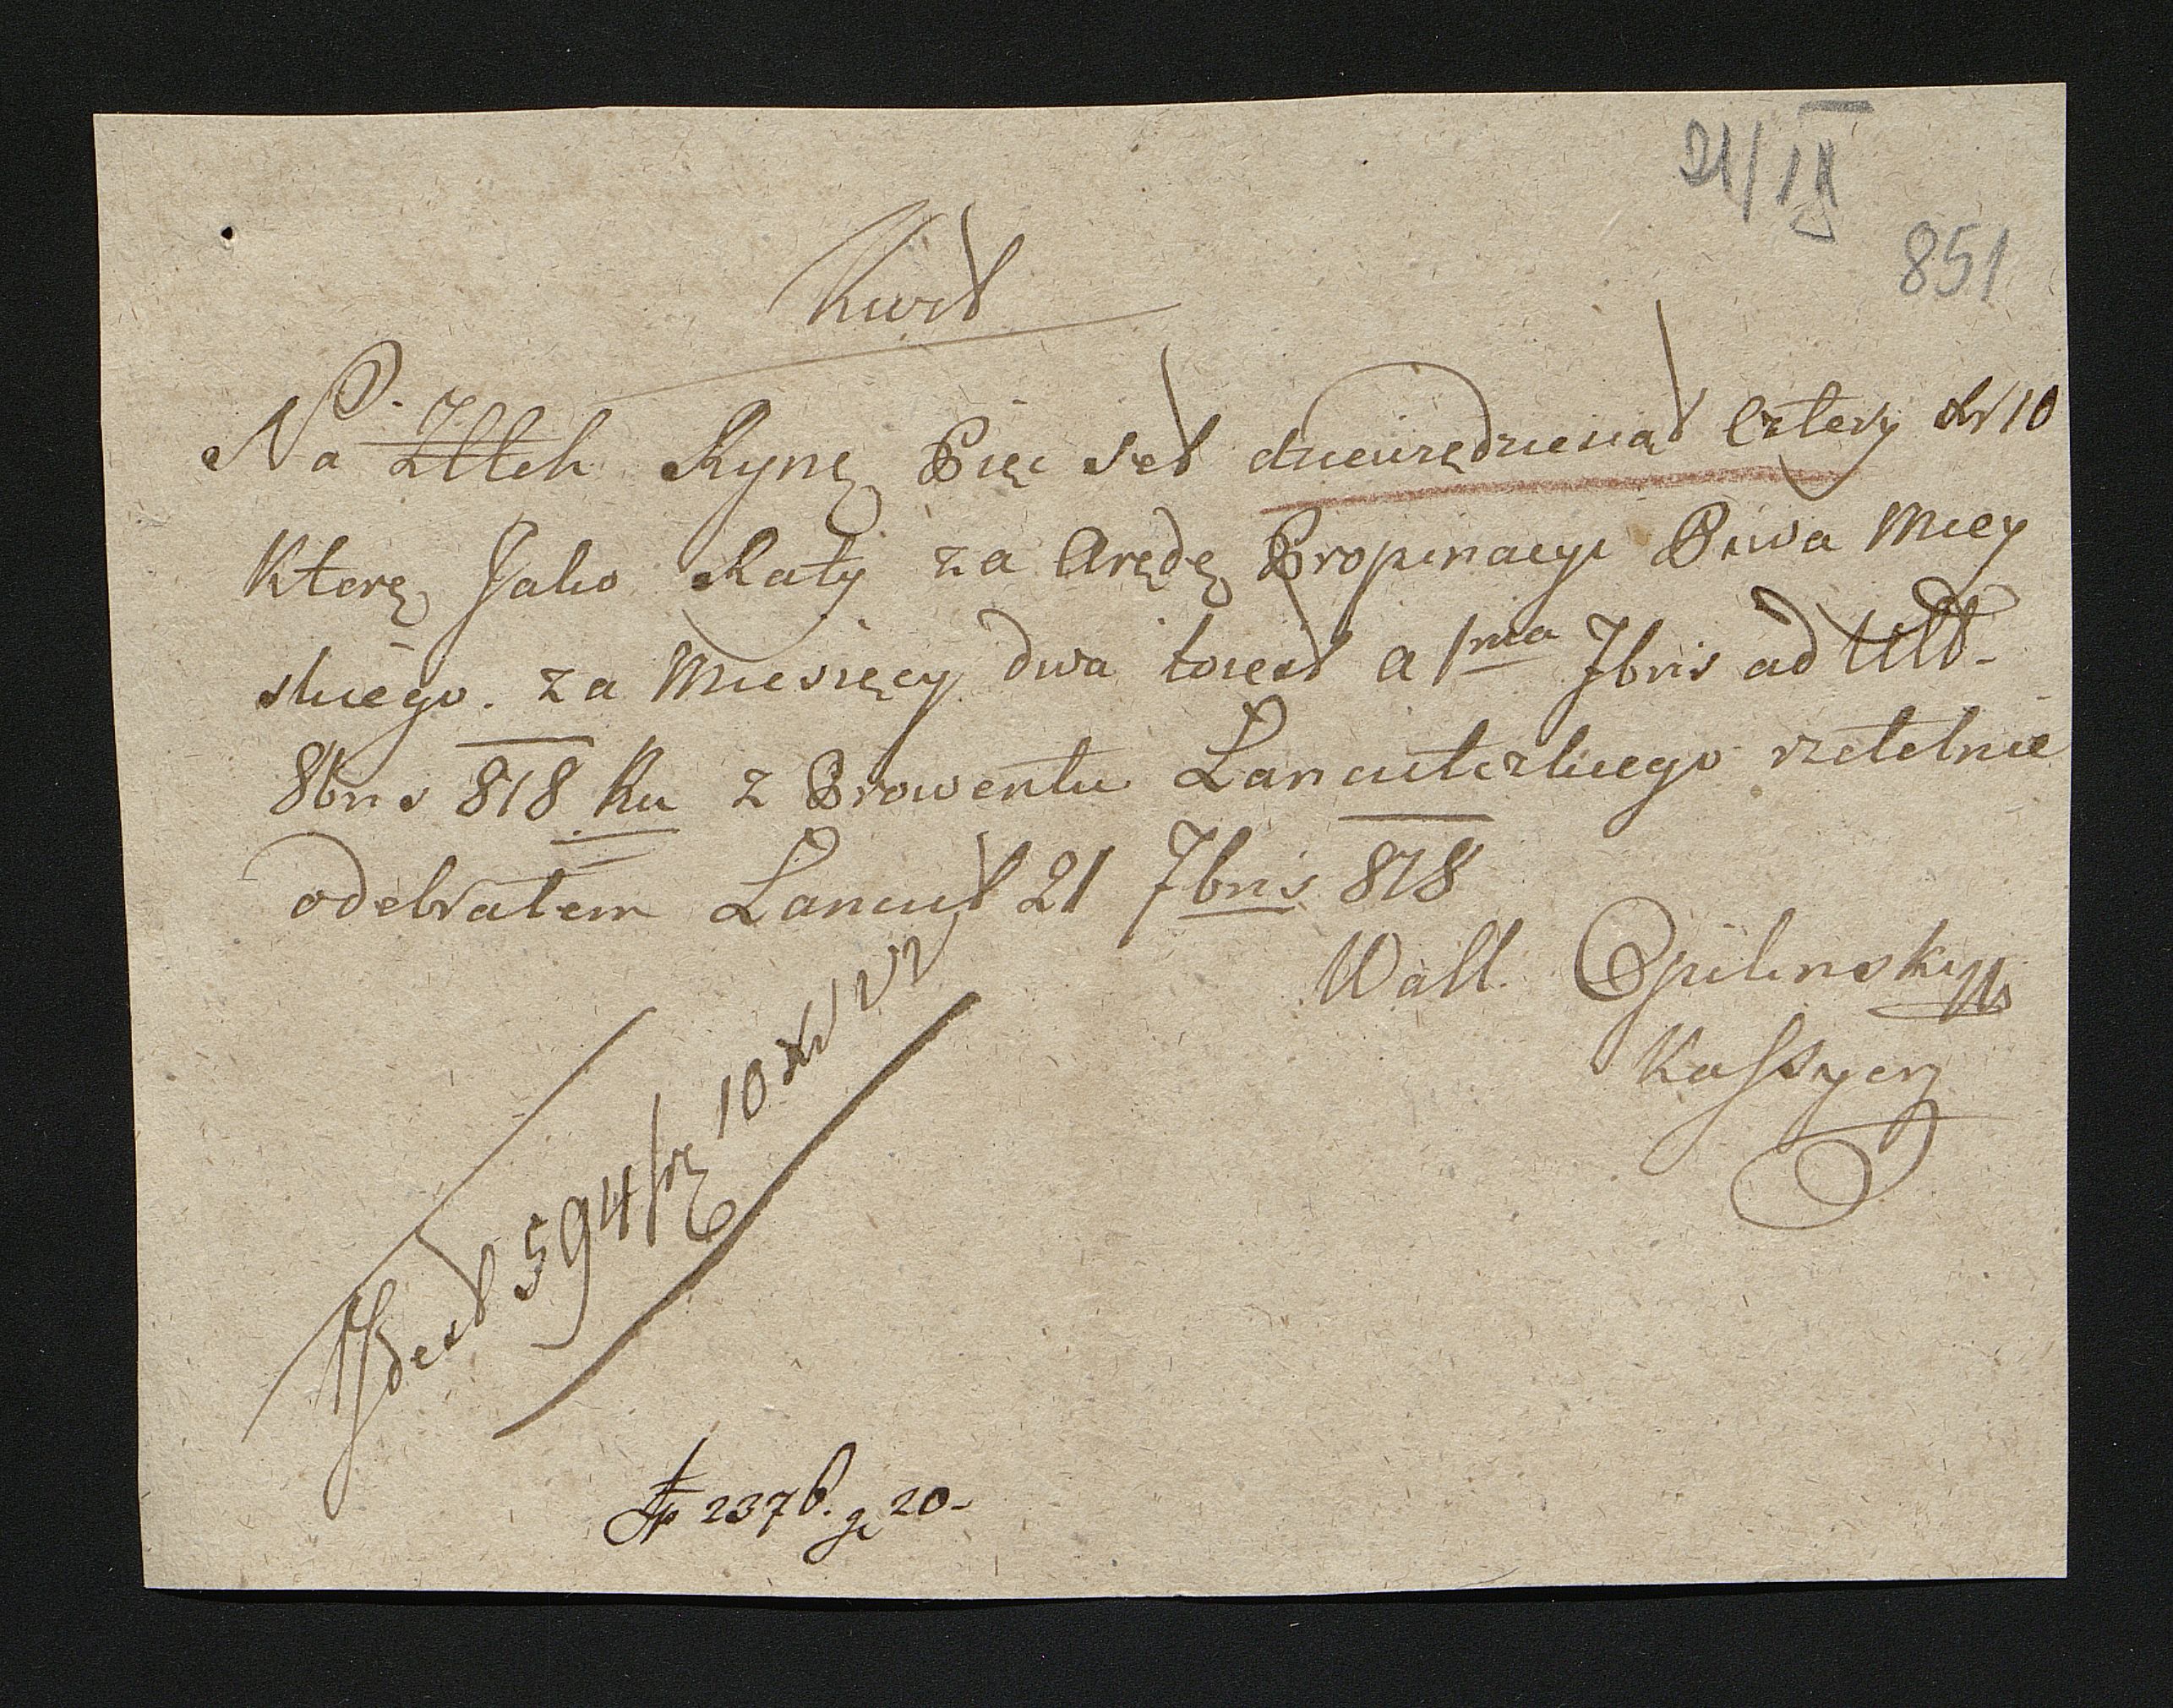 21/IX
851
Kwit
Na Złtch Rynę Pięc set dziewiędziesiąt Cztery xr 10
Którę Jako Raty za Arędę Propinacyi Piwa Miey
skiego. za Miesięcy dwa toiest a 1ma 7bris ad Ult.
8bris 818 Ru z Prowentu Łancutczkiego rzetelnie
odebrałem Łancut 21 7bris 818
Wall. Opilinsky
Kassyerz
Idest 594 fr 10 xr
fp 2376. g 20-